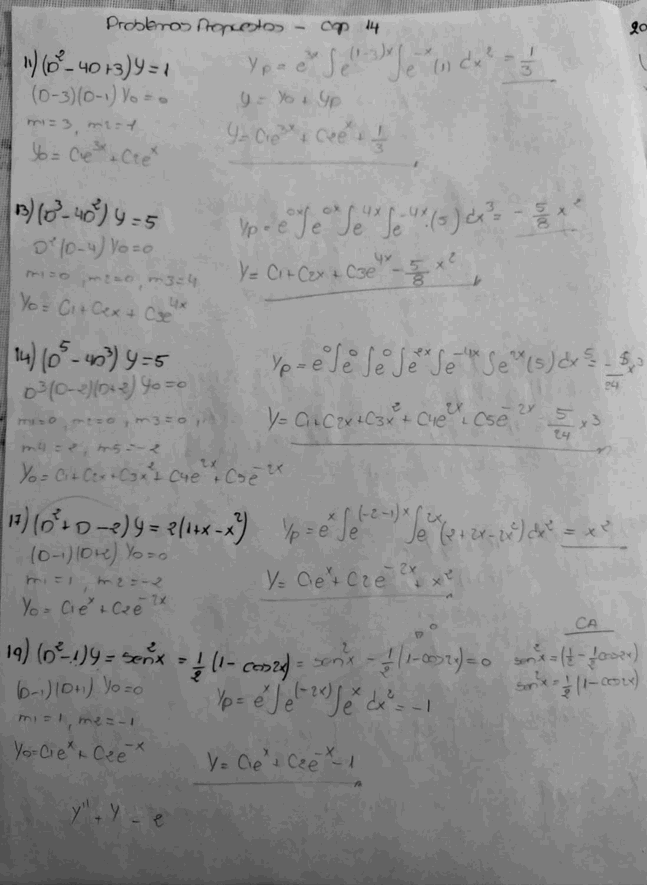 Problemas Propuestos - cap 14
20
11) (D² - 4D + 3) y = 1
(D-3)(D-1) y₀ = 0
m1 = 3, m2 = 1
y₀ = C1e^{3x} + C2e^x
yp = e^{3x} ∫ e^{(1-3)x} ∫ e^{-x} (1) dx² = 1/3
y = y₀ + yp
y = C1e^{3x} + C2e^x + 1/3
13) (D³ - 4D²) y = 5
D²(D-4) y₀ = 0
m1 = 0, m2 = 0, m3 = 4
y₀ = C1 + C2x + C3e^{4x}
yp = e^{0x} ∫ e^{0x} ∫ e^{4x} ∫ e^{-4x} · (5) dx³ = - 5/8 x²
y = C1 + C2x + C3e^{4x} - 5/8 x²
14) (D⁵ - 4D³) y = 5
D³(D-2)(D+2) y₀ = 0
m1 = 0, m2 = 0, m3 = 0,
m4 = 2, m5 = -2
y₀ = C1 + C2x + C3x² + C4e^{2x} + C5e^{-2x}
yp = e⁰ ∫ e⁰ ∫ e⁰ ∫ e^{2x} ∫ e^{-4x} ∫ e^{2x} (5) dx⁵ = - 5/24 x³
y = C1 + C2x + C3x² + C4e^{2x} + C5e^{-2x} - 5/24 x³
17) (D² + D - 2) y = 2(1 + x - x²)
(D-1)(D+2) y₀ = 0
m1 = 1, m2 = -2
y₀ = C1e^x + C2e^{-2x}
yp = e^x ∫ e^{(-2-1)x} ∫ e^{2x} (2 + 2x - 2x²) dx² = x²
y = C1e^x + C2e^{-2x} + x²
19) (D² - 1) y = sen²x = 1/2 (1 - cos2x) = sen²x - 1/2 (1 - cos2x) = 0
(D-1)(D+1) y₀ = 0
m1 = 1, m2 = -1
y₀ = C1e^x + C2e^{-x}
yp = e^x ∫ e^{(-2x)} ∫ e^x dx² = -1
y = C1e^x + C2e^{-x} - 1
CA
sen²x = (1/2 - 1/2 cos2x)
sen²x = 1/2 (1 - cos2x)
y'' + y - e